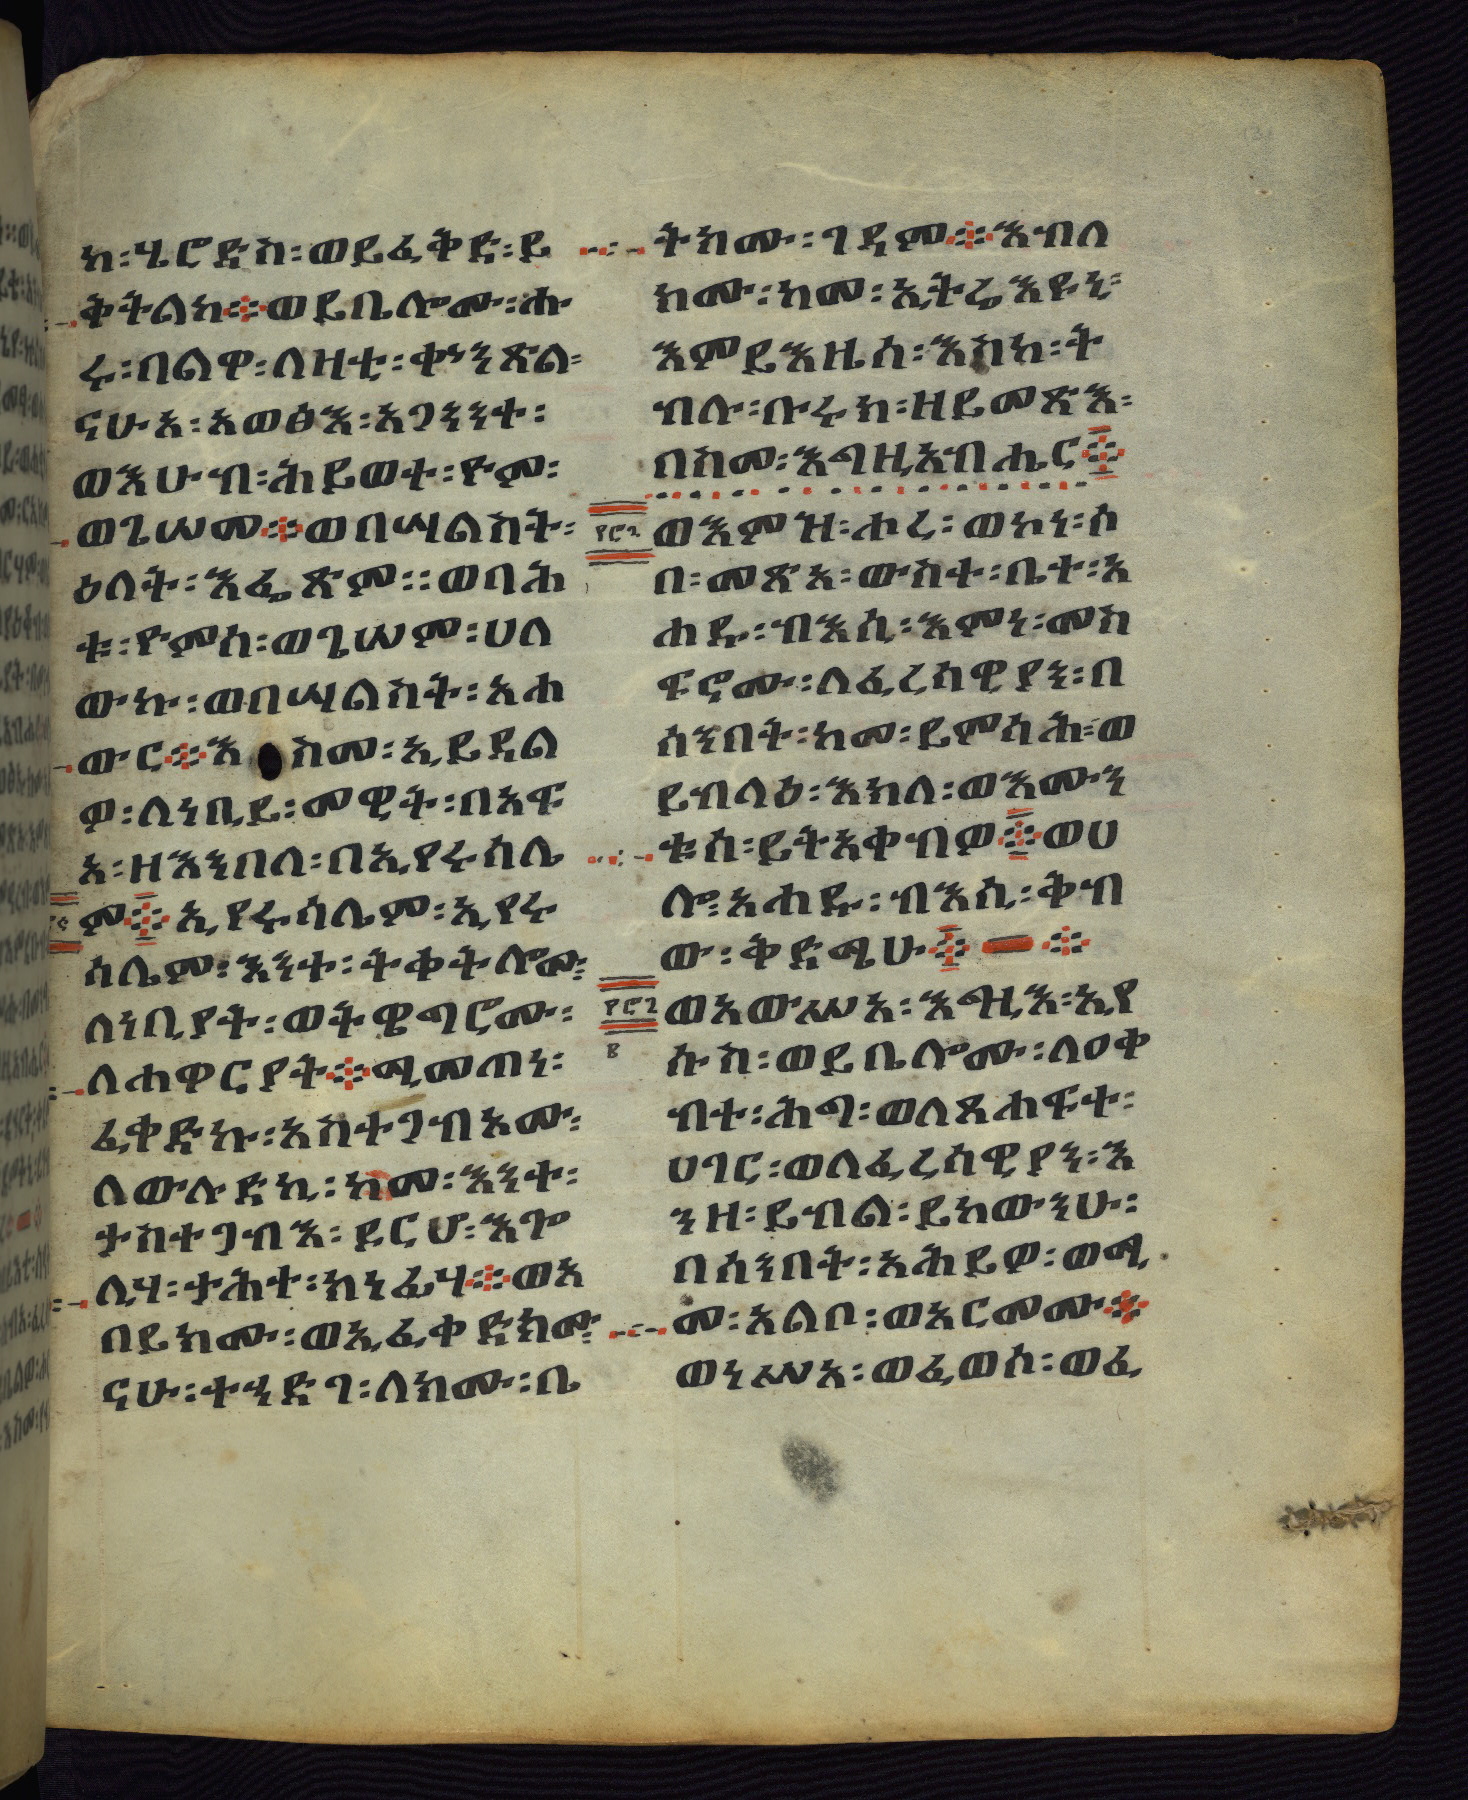 ክ፡ሄሮድስ፡ወይፈቅድ፡ይ
ቅትልከ፨ወይቤሎሙ፡ሑ
ሩ፡በልዋ፡ለዛቲ፡ቍንጽል፡
ናሁ፡አ፡አወፅእ፡አጋንንተ፡
ወእሁብ፡ሕይወተ፡ዮም፡
ወጌሠመ፨ወበሣልስት፡
ዕለት፡እፌጽም፡፡ወባሕ
ቱ፡ዮምሰ፡ወጌሠም፡ሀለ
ውኩ፡ወበሣልስት፡አሐ
ውር፨እ ስመ፡ኢይደል
ዎ፡ለነቢይ፡መዊት፡በአፍ
አ፡ዘእንበለ፡በኢየሩሳሌ
ም፨ኢየሩሳሌም፡ኢየሩ
ሳሌም፡እንተ፡ትቀትሎሙ፡
ለነቢያት፡ወትዌግሮሙ፡
ለሐዋርያት፨ሚመጠነ፡
ፈቀድኩ፡አስተጋብኦሙ፡
ለውሉድኪ፡ከመ፡እንተ፡
ታስተጋብእ፡ዶርሆ፡እጐ
ሊሃ፡ታሕተ፡ክነፊሃ፨ወአ
በይክሙ፡ወኢፈቀድክሙ፡
ናሁ፡ተኀድገ፡ለክሙ፡ቤ
ትክሙ፡ገዳመ፨እብለ
ክሙ፡ከመ፡ኢትሬእዩኒ፡
እምይእዜሰ፡እስከ፡ት
ብሉ፡ቡሩክ፡ዘይመጽእ፡
በስመ፡እግዚአብሔር፨
፻፸፫
ወእምዝ፡ሖረ፡ወኮነ፡ሶ
በ፡መጽአ፡ውስተ፡ቤተ፡አ
ሐዱ፡ብእሲ፡እምነ፡መኳ
ፍኖሙ፡ለፈሪሳዊያን፡በ
ሰንበት፡ከመ፡ይምሳሕ፡ወ
ይብላዕ፡እክለ፡ወእሙን
ቱሰ፡ይትአቀብዎ፨ወሀ
ሎ፡አሐዱ፡ብእሲ፡ቅብ
ው፡ቅድሜሁ፨
ወአውሥአ፡እግዚእ፡ኢየ
ሱስ፡ወይቤሎሙ፡ለዐቀ
ብተ፡ሕግ፡ወለጸሐፍተ፡
ሀገር፡ወለፈሪሳዊያን፡እ
ንዘ፡ይብል፡ይከውንሁ፡
በሰንበት፡አሕይዎ፡ወሚ
መ፡አልቦ፡ወአርመሙ፨
ወነሥአ፡ወፈወሰ፡ወፈ